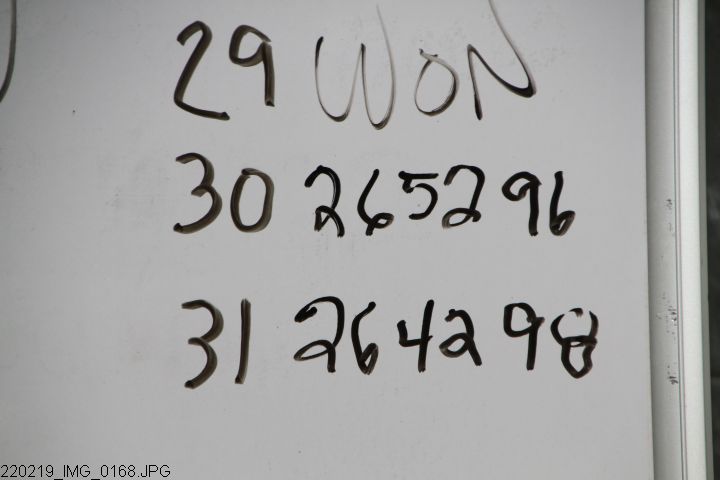 29 WON
30 265296
31 264298
220219_IMG_0168.JPG